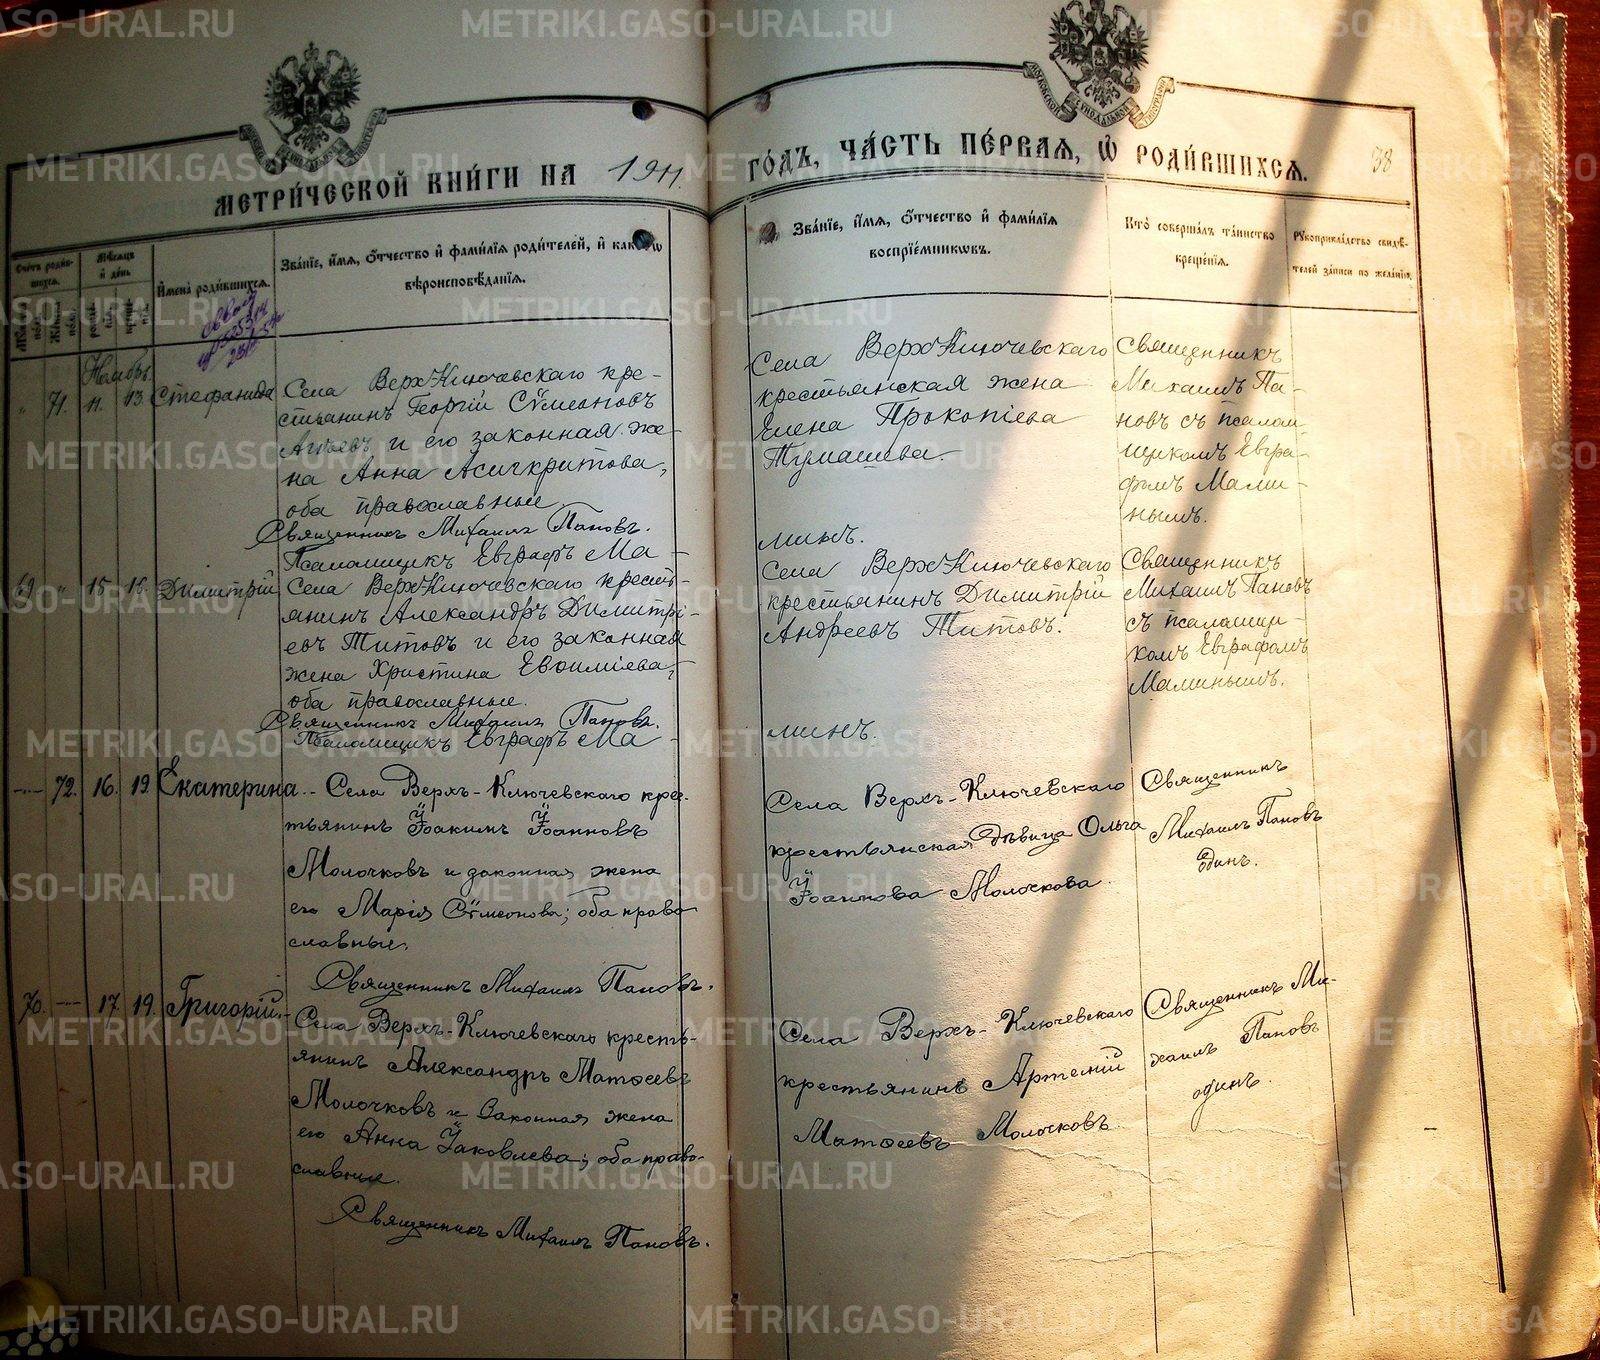 МЕТРИ́ЧЕСКОЙ КНИ́ГИ НА 1911.
ГО́ДЪ, ЧА́СТЬ ПЕ́РВАЯ, Ѡ҆ РОДИ́ВШИХСЯ.
38
Счетъ роди́в-
шихся.
Мѣсяцъ
и҆ де́нь
И҆мена̀ роди́вшихся.
Зва́нїе, и҆́мя, ѻ҆́тчество и҆ фами́лїя роди́телей, и҆ како́гѡ
вѣроисповѣ́данїя.
Зва́нїе, и҆́мя, ѻ҆́тчество и҆ фами́лїя
воспрїе́мникѡвъ.
Кто̀ соверша́лъ та́инство
креще́нїя.
Рꙋкоприкла́дство свидѣ́-
телей за́писи по жела́нїю.
Ноябрь.
" 71. 11. 13. Стефанида
Села Верх-Ключевскаго кре-
стьянинъ Георгій Сѵмеоновъ
и его законная же-
на Анна Асигкритова,
оба православные.
Священникъ Михаилъ Панов.
Псаломщикъ Евграфъ Ма-
Села Верх-Ключевскаго
крестьянская жена
Елена Прокопіева
Тумашева.
минъ.
Священникъ
Михаилъ Па-
новъ съ псалом-
щикомъ Евгра-
фомъ Мами-
нымъ.
69 " 15 16. Димитрій
Села Верх-Ключевскаго кресть-
янинъ Александръ Димитрі-
евъ Титовъ и его законная
жена Христина Евѳиміева,
оба православные.
Священникъ Михаилъ Пановъ.
Псаломщикъ Евграфъ Ма-
Села Верх-Ключевскаго
крестьянинъ Димитрій
Андреевъ Титовъ.
минъ.
Священникъ
Михаилъ Пановъ
съ псаломщи-
комъ Евграфомъ
Маминымъ.
— 72. 16. 19. Екатерина.
Села Верхъ-Ключевскаго кре-
тьянинъ Іоакимъ Іоанновъ
Молочковъ и законная жена
его Марія Сѵмеонова; оба право
славные.
Священникъ Михаилъ Пановъ.
Села Верхъ-Ключевскаго
крестьянская дѣвица Ольга
Іоаннова Молочкова.
Священникъ
Михаилъ Пановъ
одинъ.
70. — 17. 19. Григорій.
Села Верхъ-Ключевскаго кресть-
янинъ Александръ Матѳеевъ
Молочковъ и законная жена
его Анна Іаковлева; оба право-
славные.
Священникъ Михаилъ Пановъ.
Села Верхъ-Ключевскаго
крестьянинъ Артемій
Матѳеевъ Молочковъ.
Священникъ Ми-
хаилъ Пановъ
одинъ.
METRIKI.GASO-URAL.RU